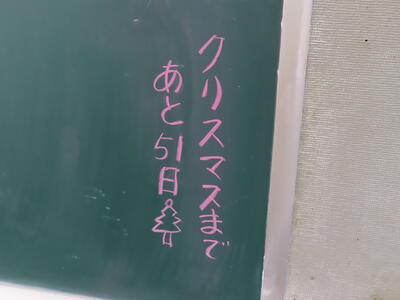 クリスマスまで
あと51日